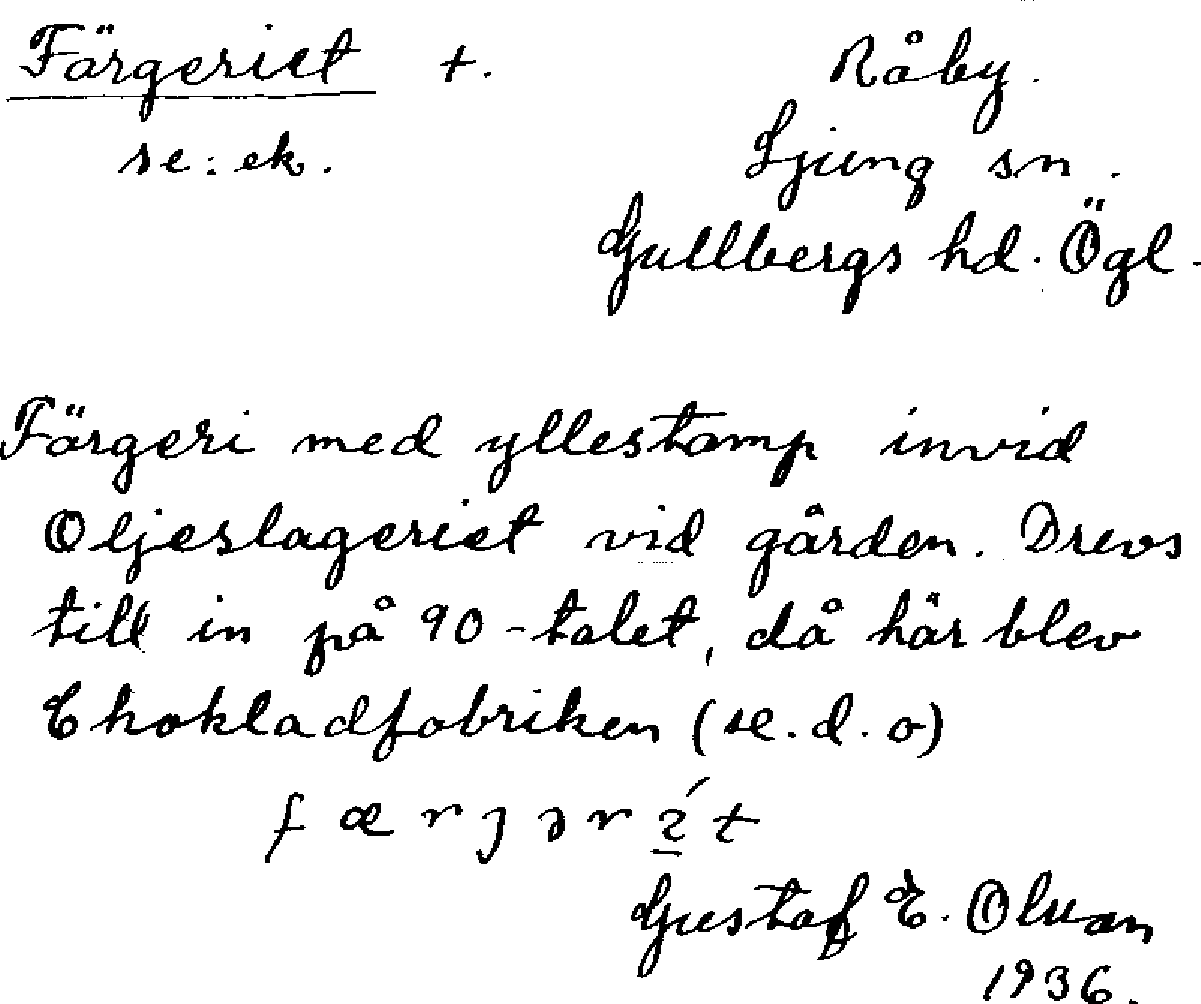 Färgeriet +.
se: ek.
Råby.
Ljung sn.
Gullbergs hd. Ögl.
Färgeri med yllestamp invid
Oljeslageriet vid gården. Drevs
till in på 90-talet, då här blev
Chokladfabriken (se. d. o)
Gustaf E. Olsson
1936.